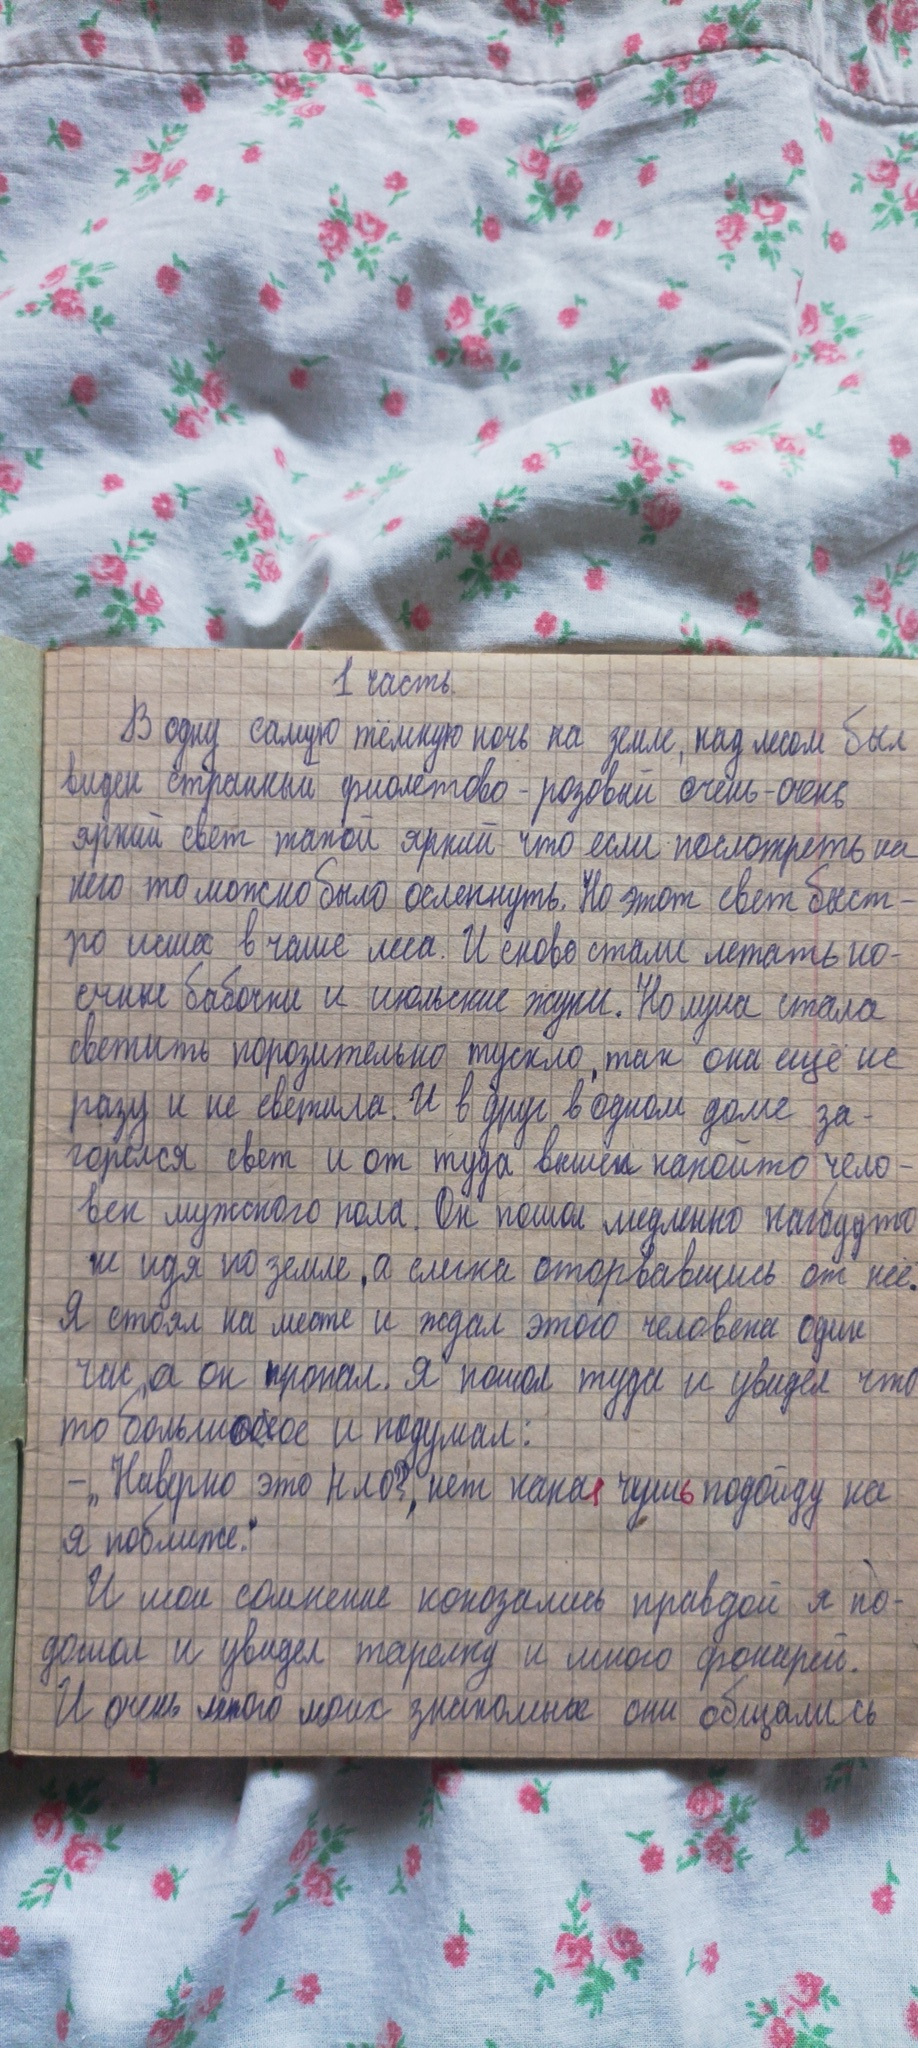 1 часть.
В одну самую тёмную ночь на земле, над лесом был
виден странный фиолетово-розовый очень-очень
яркий свет такой яркий что если посмотреть на
него то можно было ослепнуть. Но этот свет быст-
ро исчес в чаше леса. И снова стали летать но-
очные бабочки и июльские жуки. Но луна стала
светить порозительно тускло, так она ещё не
разу и не светила. И в друг в одном доме за-
горелся свет и от туда вышел какойто чело-
век мужского пола. Он пошол медленно какбудто
не идя по земле, а слегка оторвавшись от неё.
Я стоял на месте и ждал этого человека один
час, а он пропал. Я пошол туда и увидел что
то большое и подумал:
– „Наверно это Нло?, нет какая чушь подойду ка
я поближе."
И мои сомнение коказались правдой я по-
дошол и увидел тарелку и много фонарей.
И очень много моих знакомых они общались